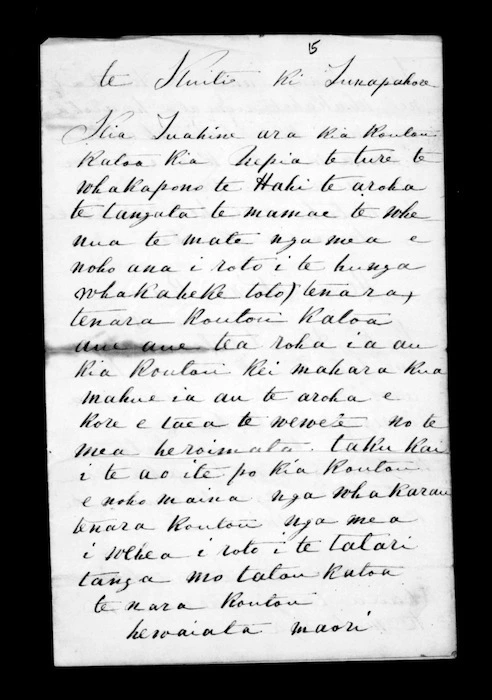 15
te Kuiti ki Tunapahore
Kia Tuahine ara kia koutou
katoa kia hepia te ture te
whakapono te Hahi te aroha
te tangata te mamae te whe
nua te mate nga mea e
noho ana i roto i te hunga
whakaheke toto) tenara,
tenara koutou katoa
aue aue tea roha ia au
kia koutou kei mahara kua
mahue ia au te aroha e
kore e taea te wewete no te
mea heroimata taku kai
i te ao ite po kia koutou
e noho maina nga whakarau
tenara koutou nga mea
i wehea i roto i te tatari
tanga mo tatou katoa
te nara koutou
hewaiata maori